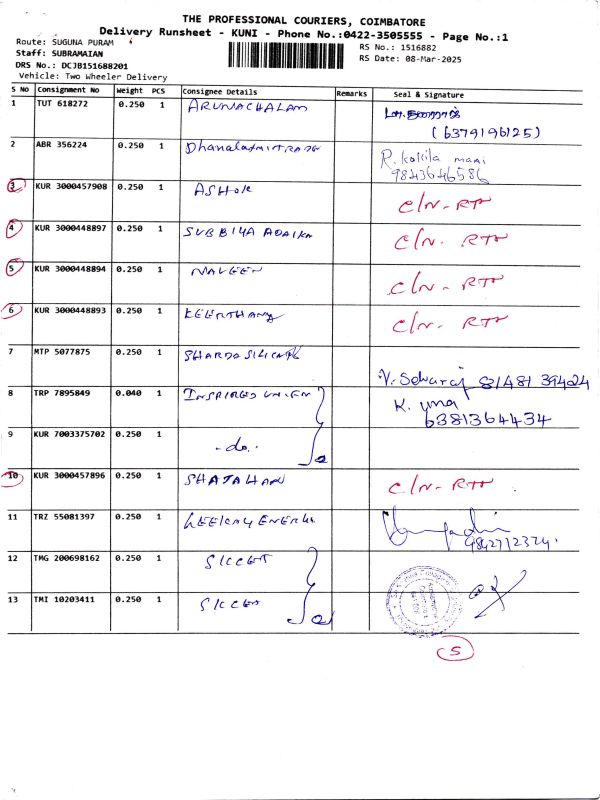 THE PROFESSIONAL COURIERS, COIMBATORE
Delivery Runsheet - KUNI - Phone No.:0422-3505555 - Page No.:1
Route: SUGUNA PURAM
RS No.: 1516882
Staff: SUBRAMAIAN
RS Date: 08-Mar-2025
DRS No.: DCJB151688201
Vehicle: Two Wheeler Delivery
S No Consignment No Weight PCS Consignee Details Remarks Seal & Signature
1 TUT 618272 0.250 1 ARUNACHALAM
(6379196125)
2 ABR 356224 0.250 1 Dhanalaxmi TRADE R. Kokila mani
9843646586
3 KUR 3000457908 0.250 1 ASHOK C/N- RTH
4 KUR 3000448897 0.250 1 SUBBIYA C/N- RTH
5 KUR 3000448894 0.250 1 NAVEEN C/N- RTH
6 KUR 3000448893 0.250 1 KEERTHANA C/N- RTH
7 MTP 5077875 0.250 1 SHARDA
V. Selvaraj 81481 39424
8 TRP 7895849 0.040 1 K. uma
6381364434
9 KUR 7003375702 0.250 1 -do-
10 KUR 3000457896 0.250 1 C/N- RTH
11 TRZ 55081397 0.250 1
9842712374.
12 TMG 200698162 0.250 1 SICCET
13 TMI 10203411 0.250 1 SICCET
5